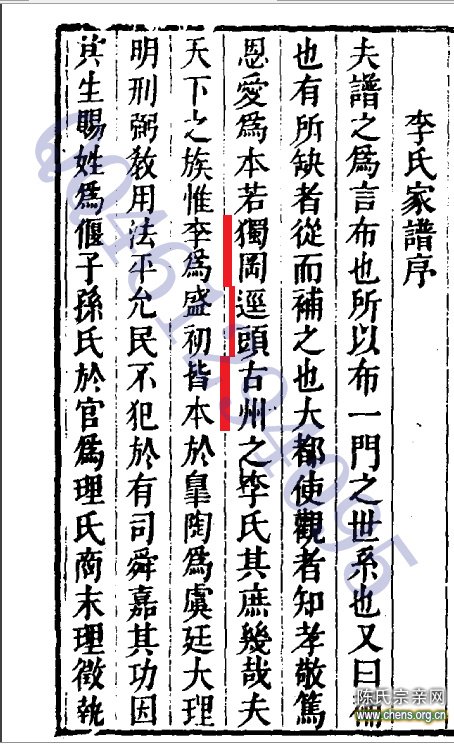 李氏家譜序
夫譜之爲言布也所以布一門之世系也又曰補
也有所缺者從而補之也大都使觀者知孝敬篤
恩愛爲本若獨岡逕頭古州之李氏其庶幾哉夫
天下之族惟李爲盛初皆本於臯陶爲虞廷大理
明刑弼敎用法平允民不犯於有司舜嘉其功因
其生賜姓爲偃子孫氏於官爲理氏商末理徵執
陈氏宗亲网
www.chens.org.cn